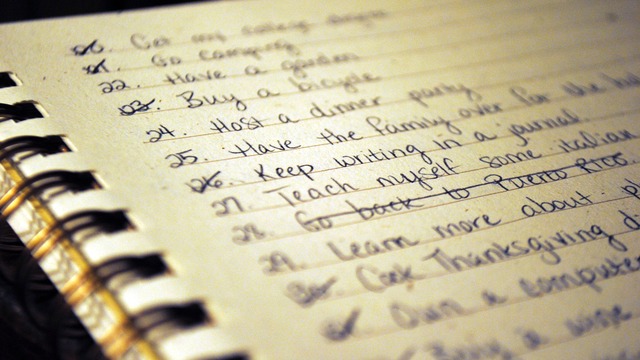 20. Get my college degree
21. Go camping
22. Have a garden
23. Buy a bicycle
24. Host a dinner party
25. Have the family over for the
26. Keep writing in a journal.
27. Teach myself some italian
28. Go back to Puerto Rico
29. Learn more about
30. Cook Thanksgiving
Own a computer
Buy a